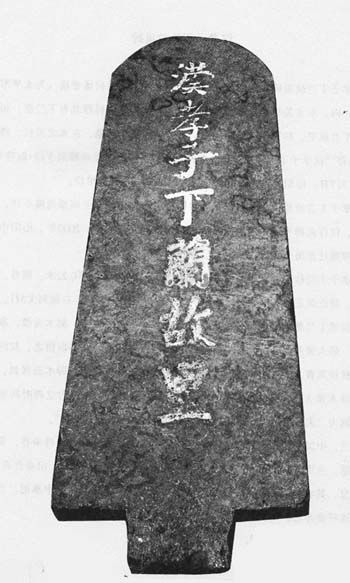 漢孝子下蘭故里